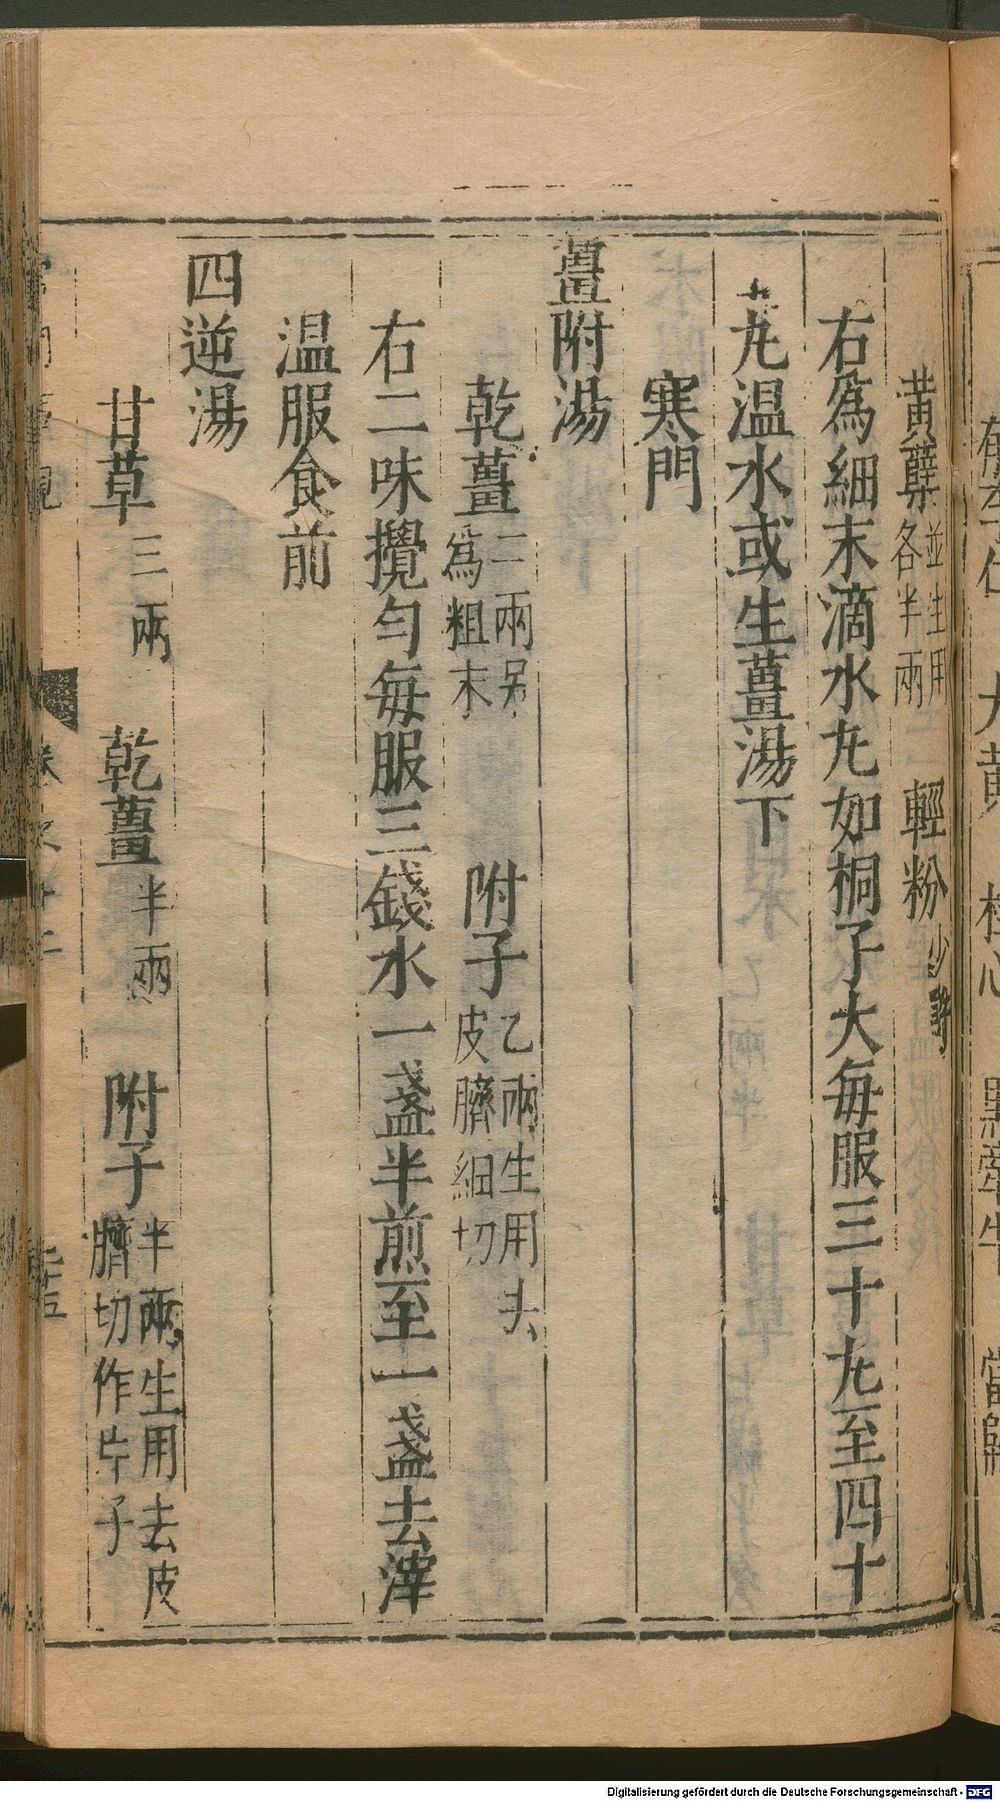 黄蘗並生用各半兩 輕粉少許
右爲細末滴水丸如桐子大每服三十丸至四十
丸温水或生薑湯下
寒門
薑附湯
乾薑二兩另爲粗末 附子乙兩生用去皮臍細切
右二味攪勻每服三錢水一盞半煎至一盞去滓
温服食前
四逆湯
甘草三兩 乾薑半兩 附子半兩生用去皮臍切作片子
Digitalisierung gefördert durch die Deutsche Forschungsgemeinschaft - DFG